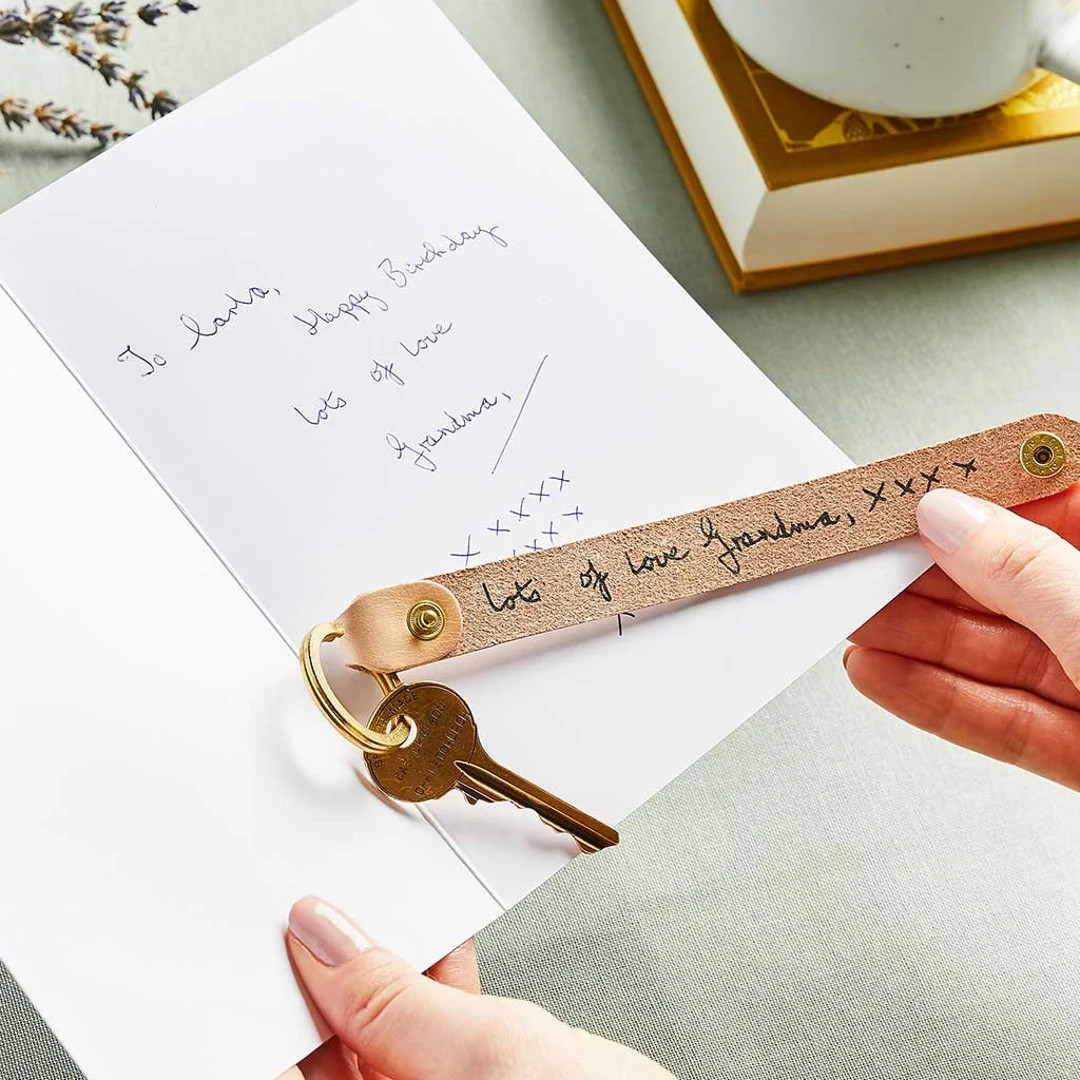 To Carla,
Happy Birthday
lots of love
Grandma,
x x x x x
x x x x
lots of love Grandma, x x x x